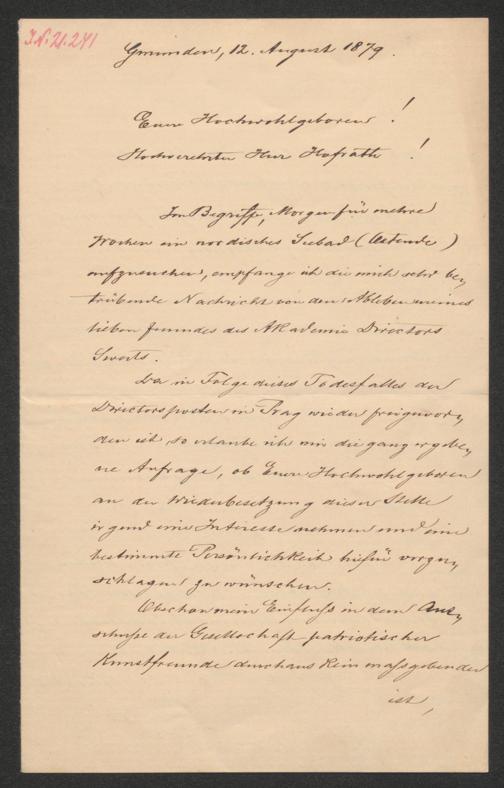 J.N. 21.241
Gmunden, 12. August 1879.
Euer Hochwohlgeboren!
Hochverehrter Herr Hofrath!
Im Begriffe, Morgen für mehre
Wochen ein nordisches Seebad (Ostende)
aufzusuchen, empfange ich die mich sehr be,
trübende Nachricht von dem Ableben meines
lieben Freundes des Akademie Directors
Swerts.
Da in Folge dieses Todesfalles der
Directorsposten in Prag wieder freigewor,
den ist, so erlaube ich mir die ganz ergebe,
ne Anfrage, ob Euer Hochwohlgeboren
an der Wiederbesetzung dieser Stelle
irgend eine Interesse nehmen und eine
bestimmte Persönlichkeit hiefür vorzu,
schlagen zu wünschen.
Obschon mein Einfluss in dem Aus,
schusse der Gesellschaft patriotischer
Kunstfreunde durchaus kein massgebender
ist,